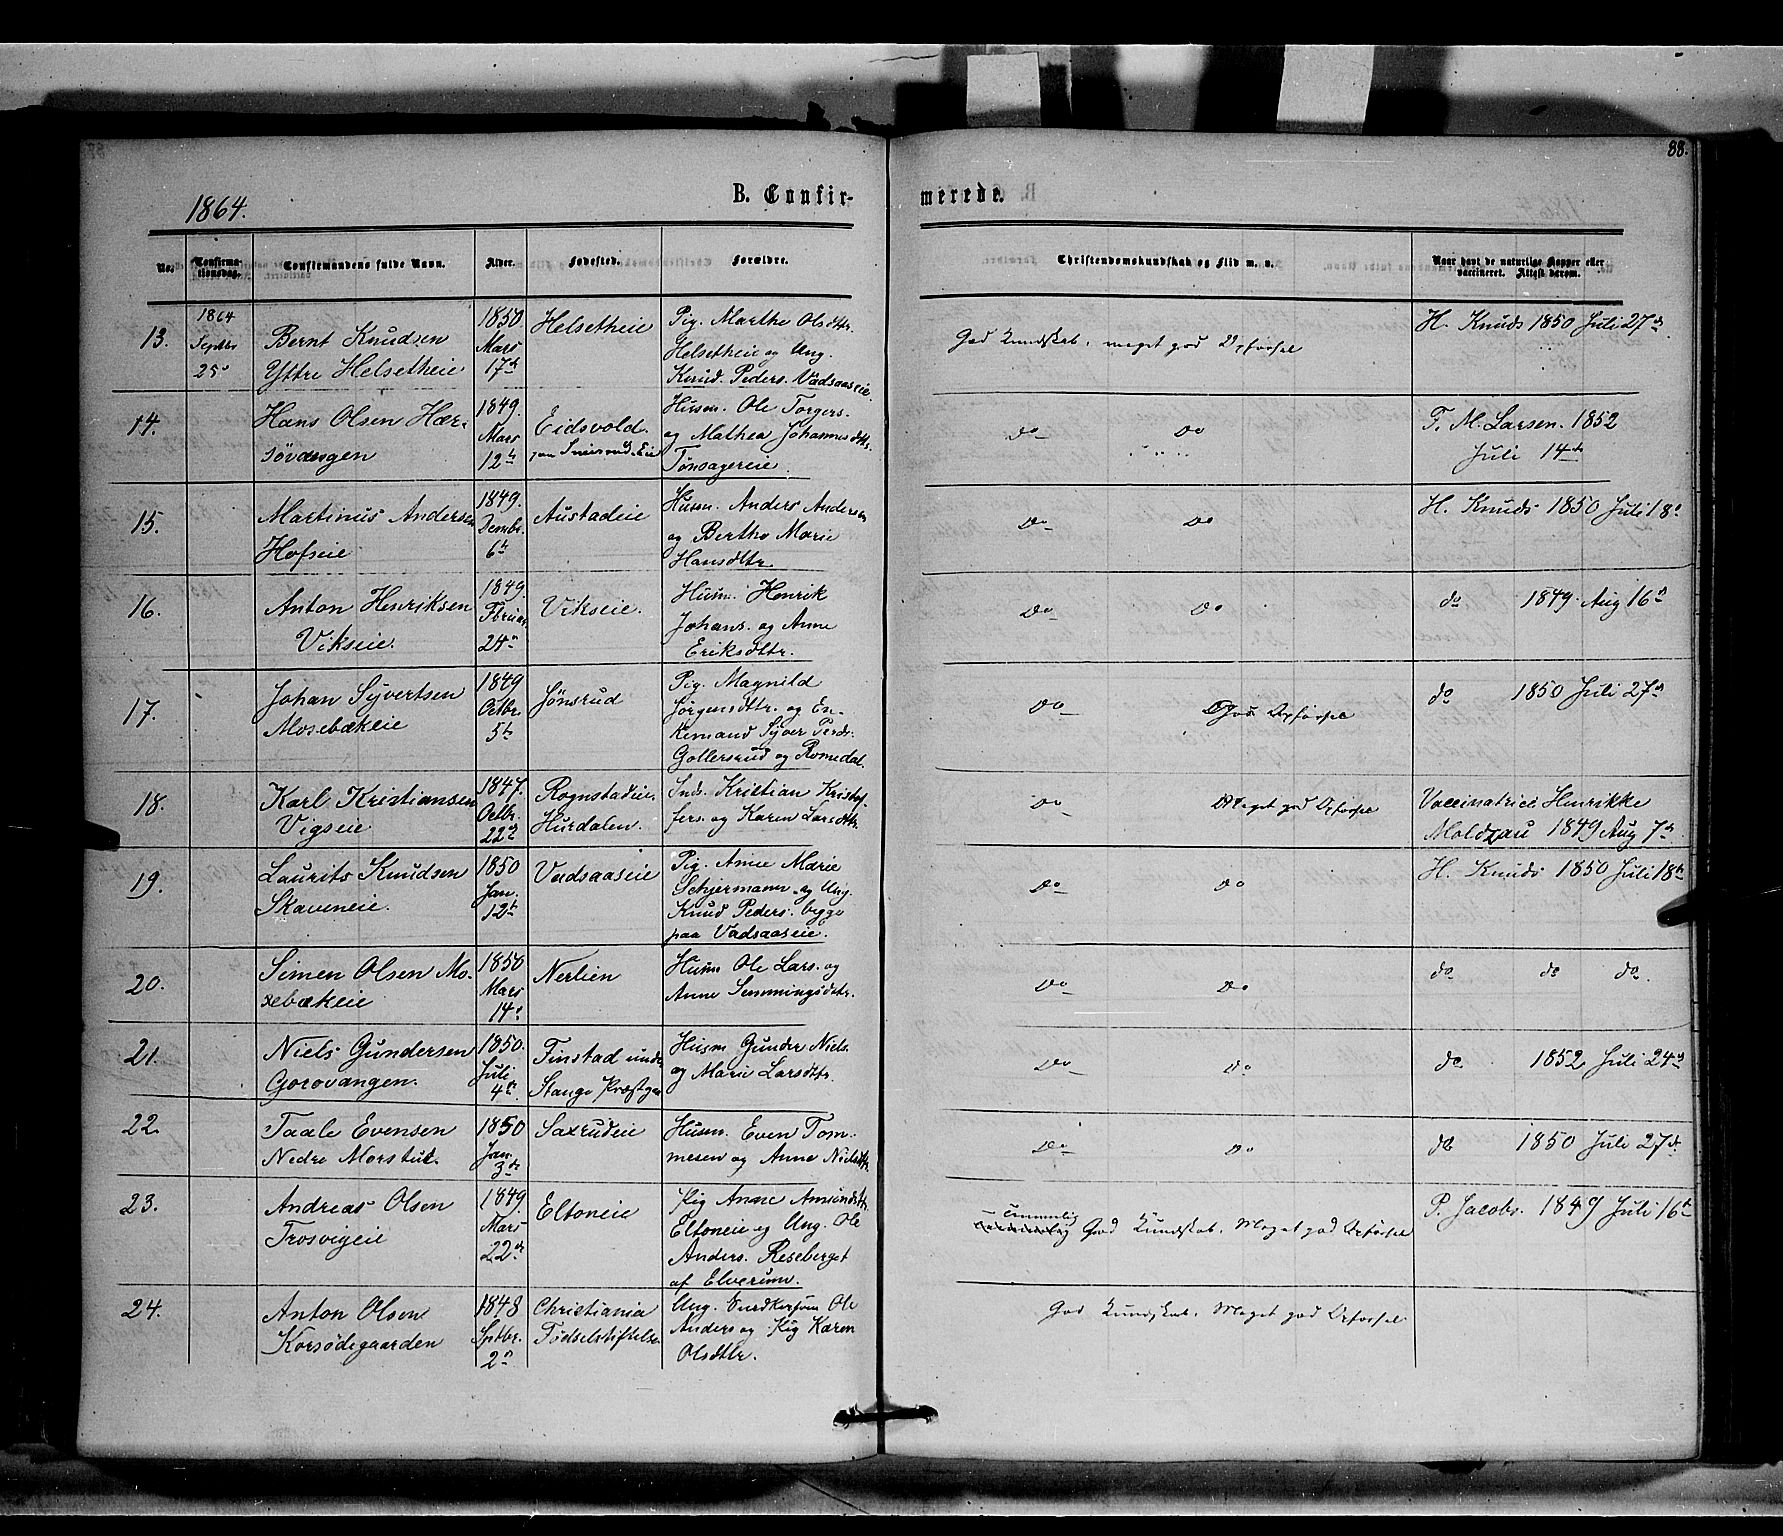 88.
1864.
B. Confir- merede.
No.
Confirma-
tionsdag.
Confirmandens fulde Navn.
Alder.
Fødested.
Forældre.
Christendomskundskab og Flid m. v.
Naar havt de naturlige Kopper eller
vaccineret. Attest derom.
13.
1864
Septbr
25
Bernt Knudsen
Yttre Helsetheie
1850
Mars
17de
Helsetheie
Pig. Marthe Olsdtr.
Helsetheie og Ung.
Knud Peders. Vadsaaseie.
God Kundskab, meget god Opførsel
H. Knuds 1850 Juli 27de
14.
Hans Olsen Hær-
søvangen
1849.
Mars
12te
Eidsvold.
Husm. Ole Torgers.
og Mathea Johannesdtr.
Tønsagereie.
Do Do
T. M. Larsen. 1852
Juli 14de
15.
Martinus Andersen
Hofseie
1849.
Dembr.
6te
Austadeie
Husm. Anders Andersen
og Berthe Marie
Hansdttr.
Do Do
H. Knuds 1850 Juli 18
16.
Anton Henriksen
Vikseie.
1849.
Fbruar.
24
Vikseie.
Husm. Henrik
Johans. og Anne
Eriksdttr.
Do Do
do 1849. Aug 16
17.
Johan Syvertsen
Mosebækeie
1849
Octbr.
5te
Jønsrud
Pig. Magnild
Jørgensdtr. og En-
kemand Syver Peds.
Gollersrud og Romedal.
Do God Opførsel
do 1850 Juli 27
18.
Karl Kristiansen
Vigseie
1847.
Octbr.
22
Rognstadeie.
Hurdalen.
Inds. Kristian Kristof-
fers. og Karen Larsdtr.
Do Meget god Opførsel
Vaccinatrice Henrikke
Moldzau 1849 Aug 7
19.
Laurits Knudsen
Skaveneie.
1850
Jan.
12te
Vadsaaseie
Pig. Anne Marie
Schjermann og Ung.
Knud Peders. begge
paa Vadsaaseie.
Do Do
H. Knuds 1850 Juli 18te
20.
Simen Olsen Mo-
sebækeie
1850
Mars
14
Nerlien
Husm Ole Lars. og
Anne Semmingsdtr.
Do Do
do do do
21.
Niels Gundersen
Gorovangen.
1850.
Juli
4de
Finstad under
Stange Præstgjn
Husm Gunder Niels.
og Marie Larsdttr.
Do Do
do 1852 Juli 24
22.
Taale Evensen
Nedre Morstue.
1850
Jan.
3de
Saxrudeie
Husm. Even Tom-
mesen og Anne Nielsdtr.
Do Do
do 1850 Juli 27de
23.
Andreas Olsen
Trosvigeie
1849.
Mars
22de
Eltoneie
Pig Anne Amundsdtr.
Eltoneie og Ung. Ole
Anders. Reseberget
af Elverum.
Temmelig
God Kundskab. Meget god Opførsel
P. Jacobs. 1849 Juli 16te
24.
Anton Olsen
Korsødegaarden
1848
Sptbr.
2
Christiania
Fødselstiftelse
Ung. Ole
Anders og Pig Karen
Olsdttr.
God Kundskab. Meget god Opførsel